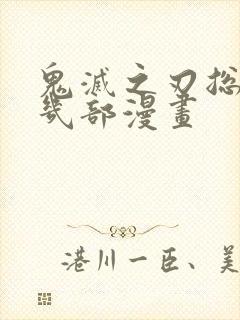 鬼滅之刃總
幾部漫畫
港川一臣、美